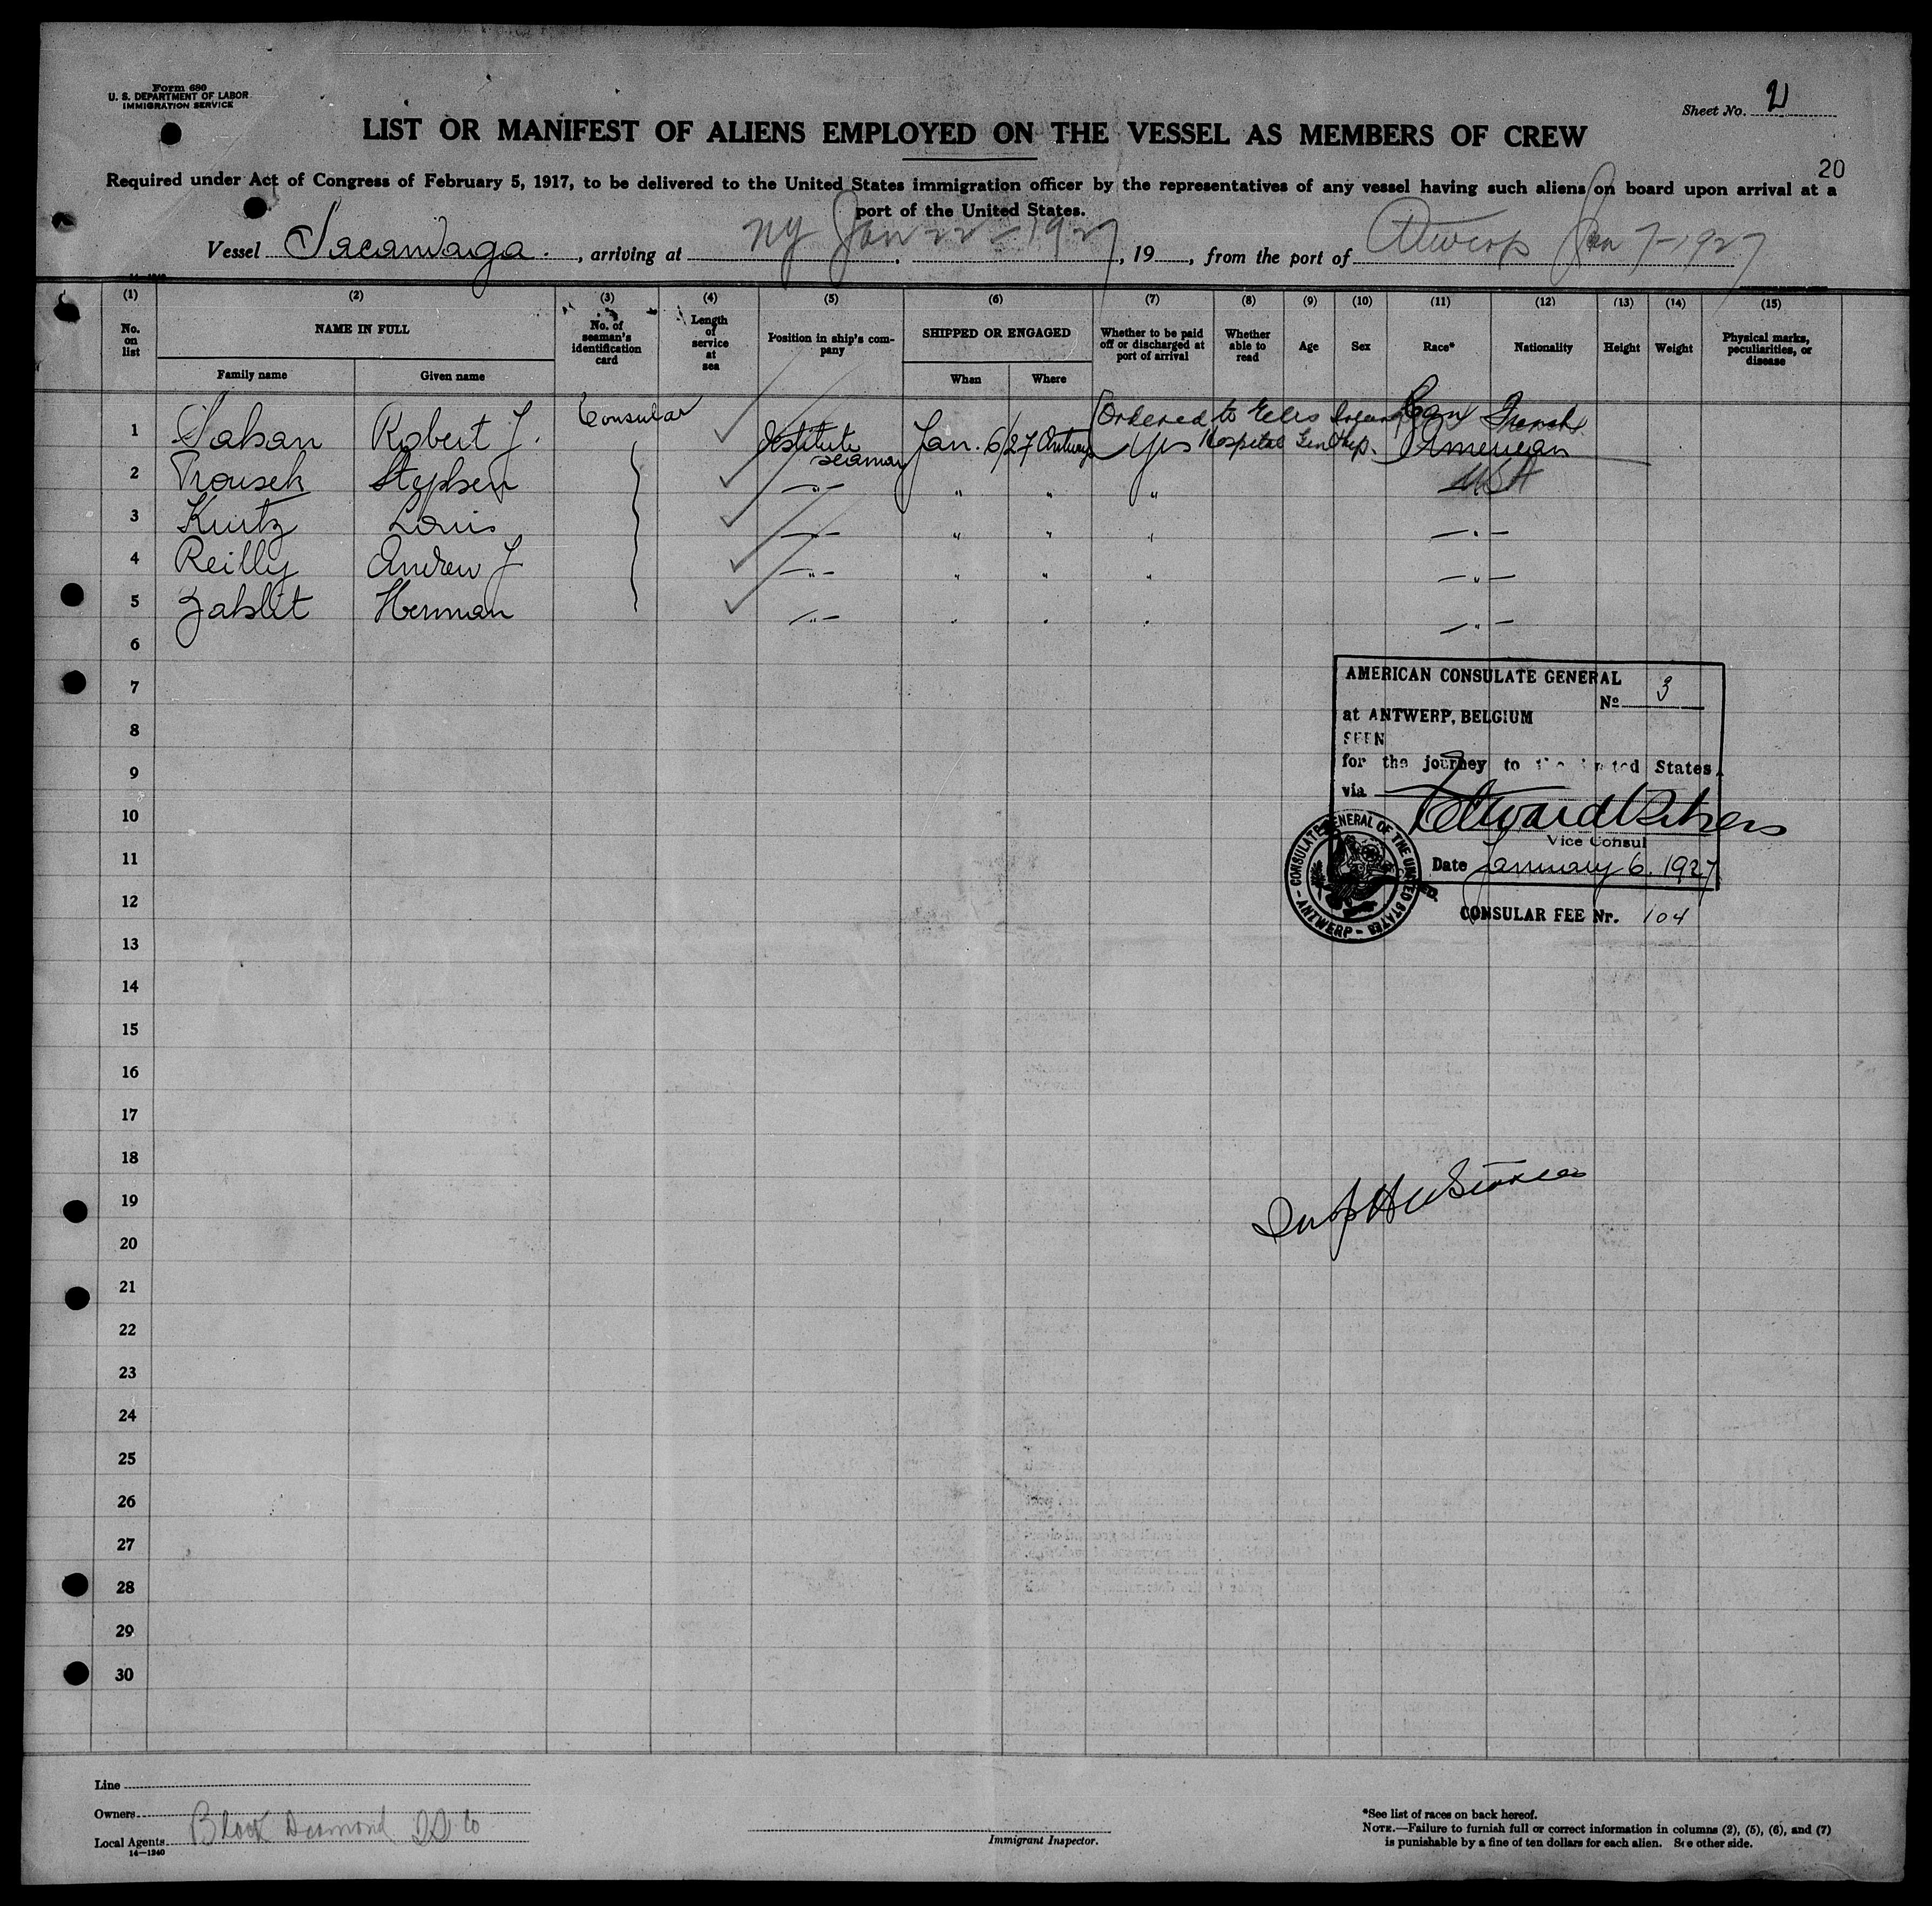 Form 680
U. S. DEPARTMENT OF LABOR
IMMIGRATION SERVICE
Sheet No. 2
LIST OR MANIFEST OF ALIENS EMPLOYED ON THE VESSEL AS MEMBERS OF CREW
20
Required under Act of Congress of February 5, 1917, to be delivered to the United States immigration officer by the representatives of any vessel having such aliens on board upon arrival at a
port of the United States.
Vessel Sacandaga., arriving at NY Jan 22-1927, 19, from the port of Antwerp Jan 7-1927
(1) (2) (3) (4) (5) (6) (7) (8) (9) (10) (11) (12) (13) (14) (15)
No. on list NAME IN FULL No. of seaman's identification card Length of service at sea Position in ship's company SHIPPED OR ENGAGED Whether to be paid off or discharged at port of arrival Whether able to read Age Sex Race* Nationality Height Weight Physical marks, peculiarities, or disease
Family name Given name When Where
Consular Ordered to Ellis French
1 Robert J. Destitute seaman Jan. 6/27 Antwerp Yes Hospital American
2 Trousek Stephen -"- " " " USA
3 Kurtz Louis -"- " " " -"-
4 Reilly Andrew J -"- " " " -"-
5 Herman -"- " " " -"-
6
7
8
9
10
11
12
13
14
15
16
17
18
19
20
21
22
23
24
25
26
27
28
29
30
AMERICAN CONSULATE GENERAL
No. 3
at ANTWERP, BELGIUM
SEEN
for the journey to the United States
via
Edward
Vice Consul
Date January 6. 1927
CONSULATE GENERAL OF THE UNITED STATES - ANTWERP -
CONSULAR FEE Nr. 104
Line
Owners
Local Agents Black Diamond SS Co
14—1240
Immigrant Inspector.
*See list of races on back hereof.
NOTE.—Failure to furnish full or correct information in columns (2), (5), (6), and (7)
is punishable by a fine of ten dollars for each alien. See other side.